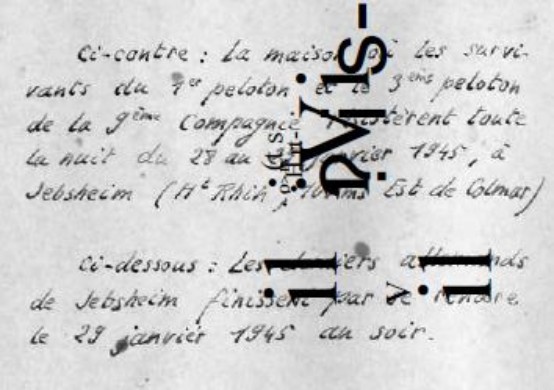 Ci-contre : La maison où les survi-
vants du 1er peloton et le 3ème peloton
de la 9ème Compagnie résistèrent toute
la nuit du 28 au janvier 1945, à
Jebsheim (Ht Rhin, kms Est de Colmar)
Ci-dessous : Les derniers allemands
de Jebsheim finissent par se rendre
le 29 janvier 1945 au soir.